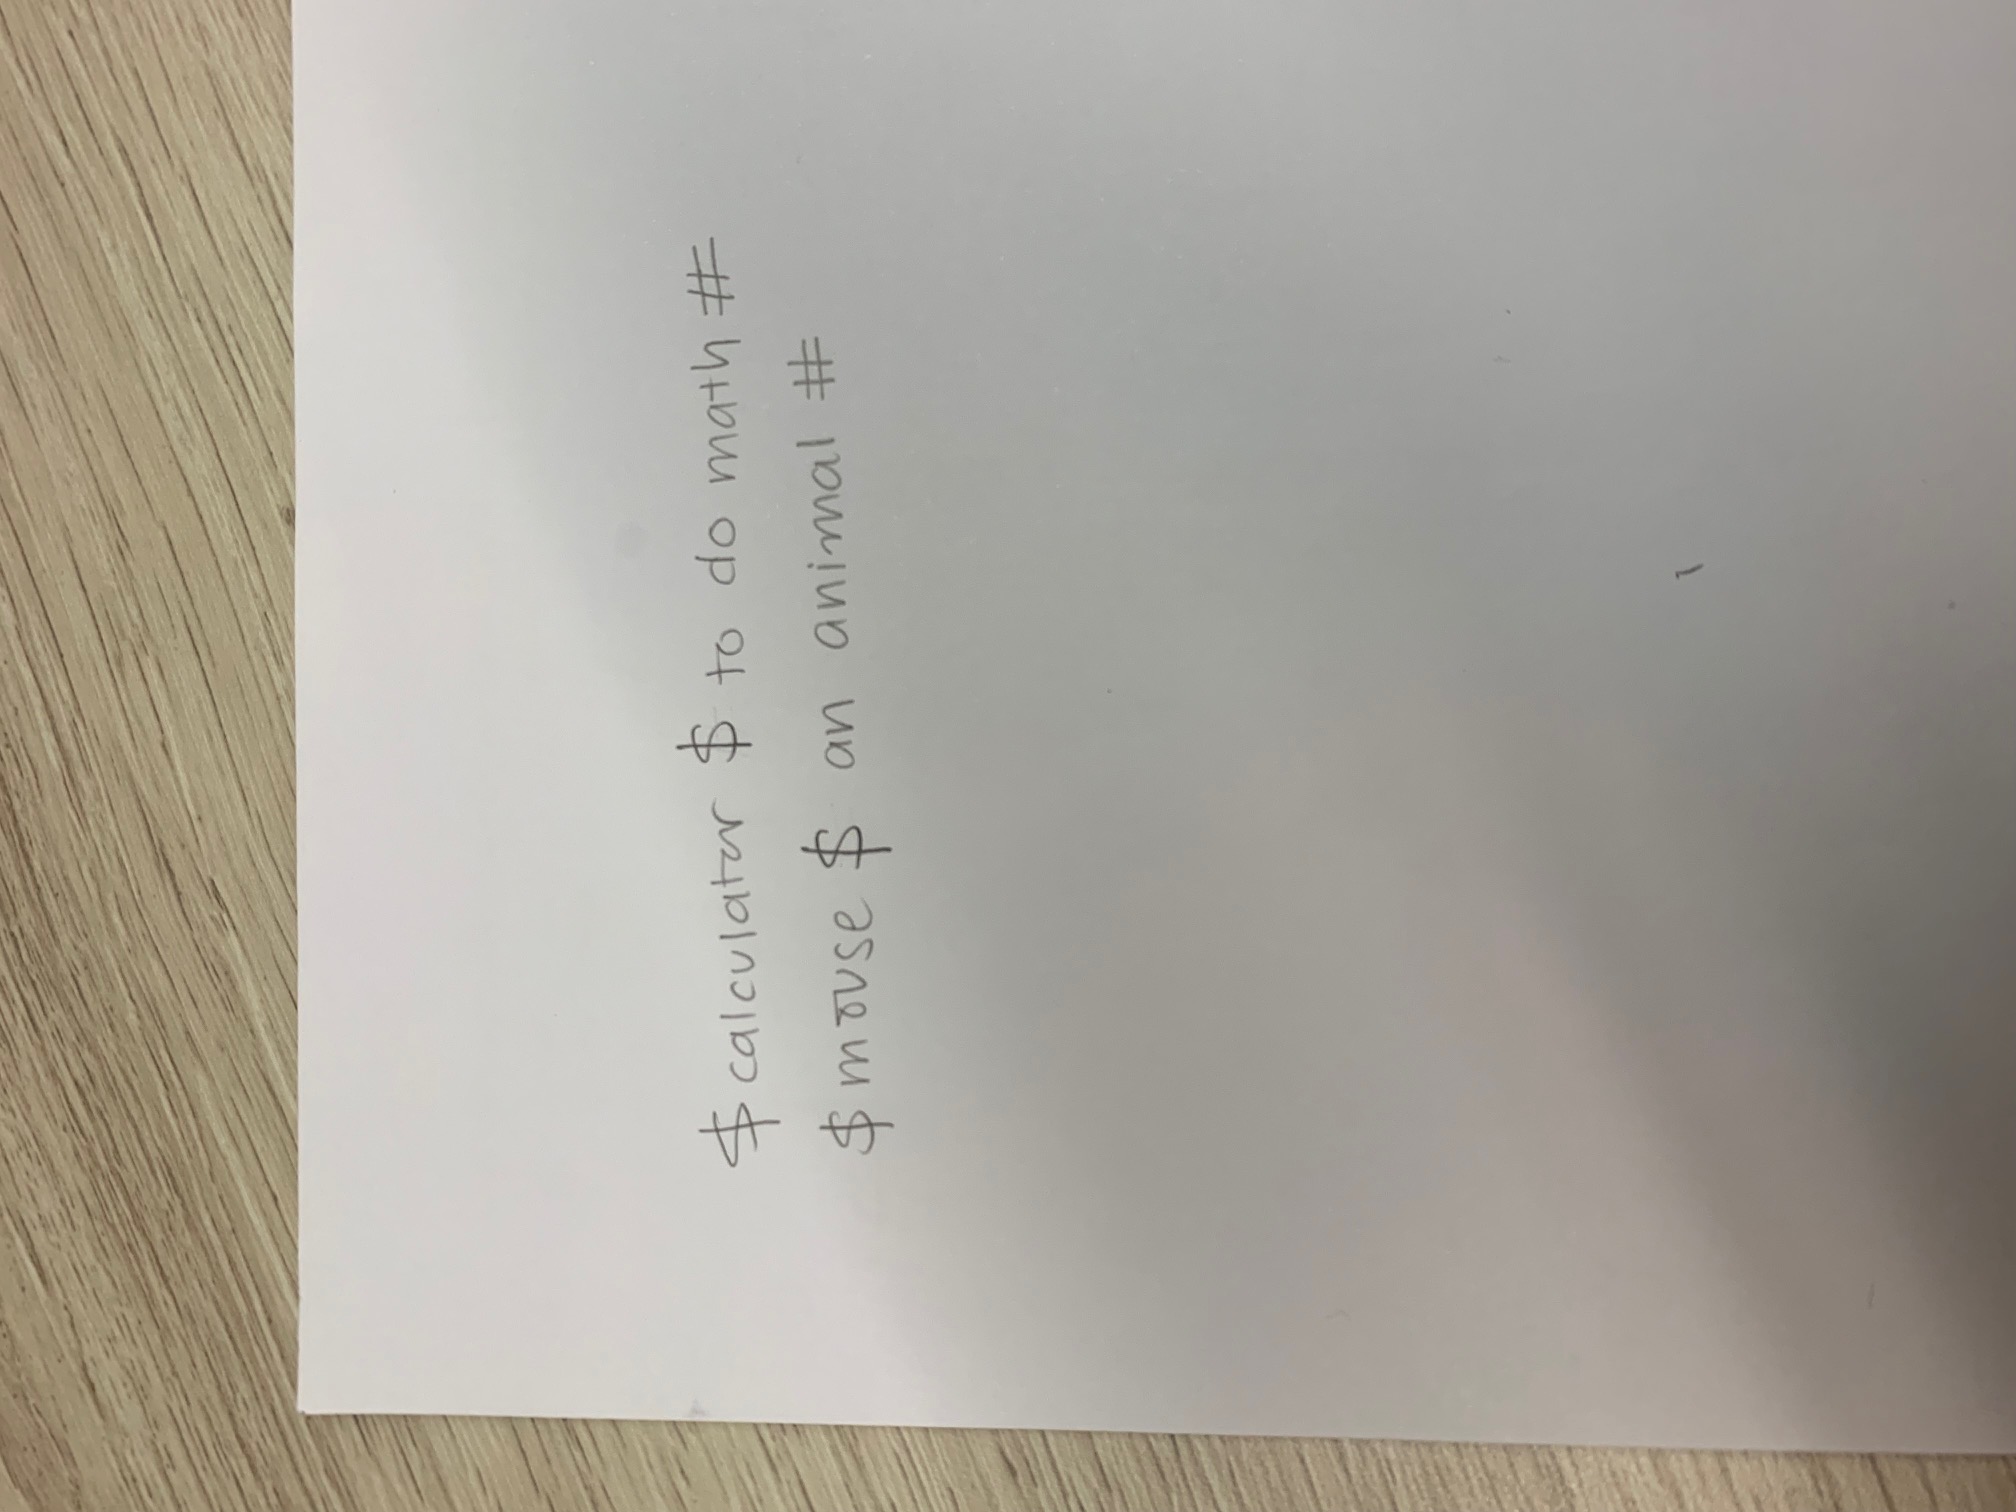 $ calculator $ to do math #
$ mouse $ an animal #